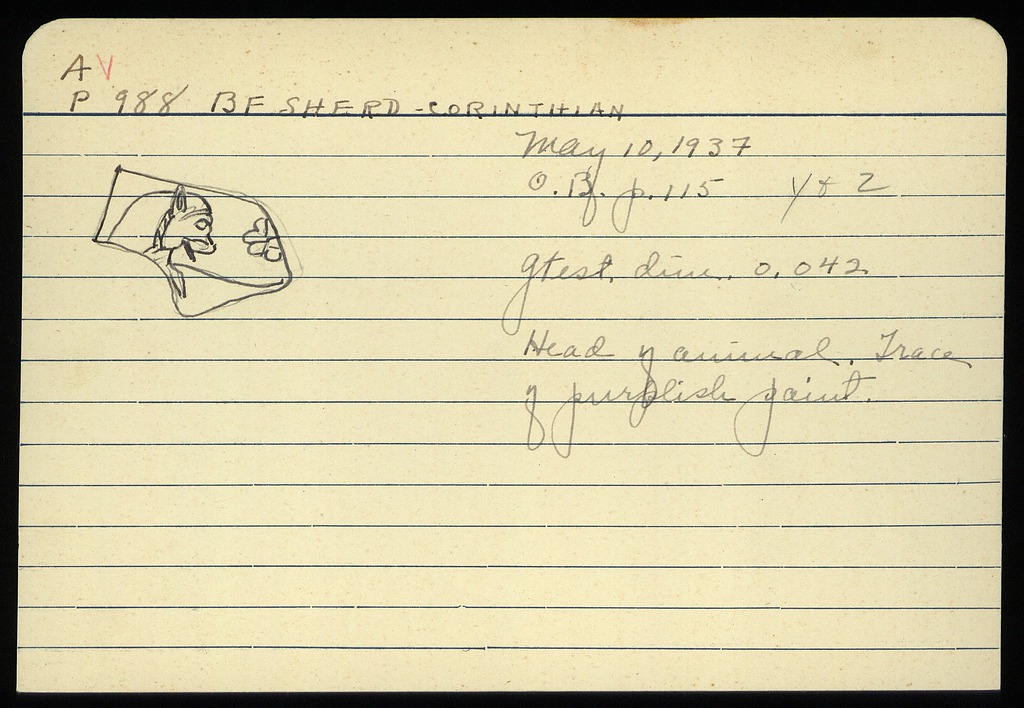 A V
P 988 BF SHERD - CORINTHIAN
May 10, 1937
O.B. p. 115 Y & Z
gtest. dim. 0.042
Head of animal. Trace
of purplish paint.